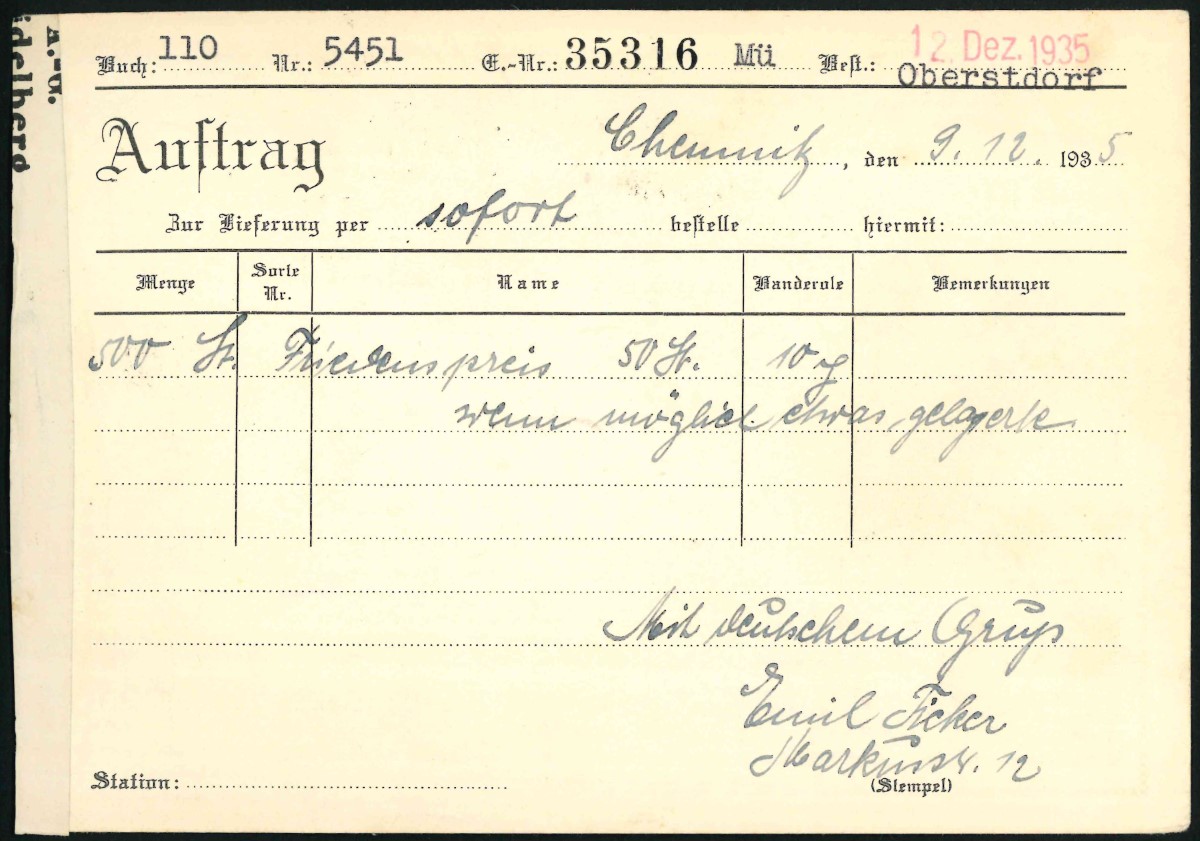 A.-G.
idelberg
12. Dez. 1935
Buch: 110 Nr.: 5451 E.-Nr.: 35316 Mü Best.: Oberstdorf
Auftrag Chemnitz, den 9. 12. 1935
Zur Lieferung per sofort bestelle hiermit:
Menge Sorte Nr. Name Banderole Bemerkungen
500 St. Friedenspreis 50 St. 10 
wenn möglich etwas gelagerte
Mit deutschem Gruß
Emil Ficker
Markusstr. 12
Station: (Stempel)